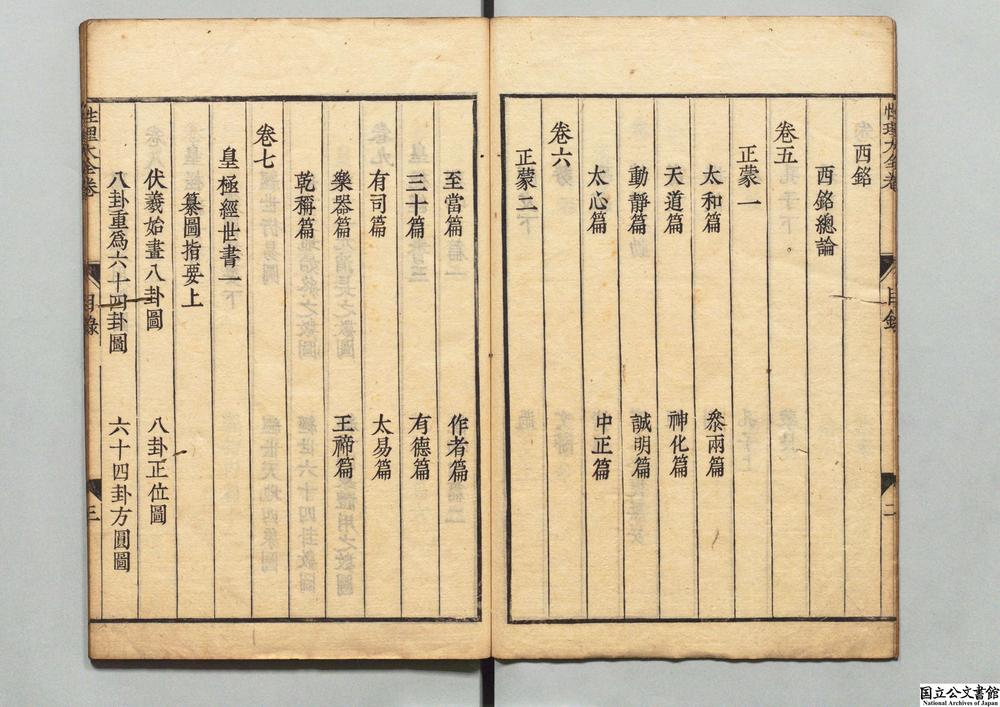 性理大全卷 目錄 二
西銘
西銘總論
卷五
正蒙一
太和篇 叅兩篇
天道篇 神化篇
動靜篇 誠明篇
太心篇 中正篇
卷六
正蒙二
至當篇 作者篇
三十篇 有德篇
有司篇 太易篇
樂器篇 王禘篇
乾稱篇
卷七
皇極經世書一
纂圖指要上
伏羲始畫八卦圖 八卦正位圖
八卦重爲六十四卦圖 六十四卦方圓圖
性理大全卷 目錄 三
国立公文書館
National Archives of Japan